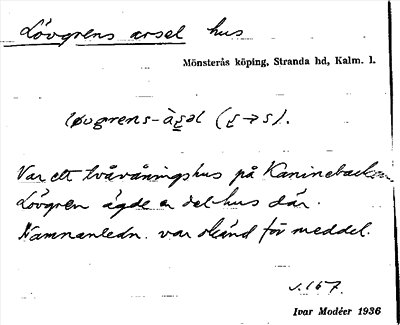 Lövgrens arsel hus
Mönsterås köping, Stranda hd, Kalm. l.
løvgrens-àʂəl (ʂ→s).
Var ett tvåvåningshus på Kaninebacken
Lövgren ägde en del hus där.
Namnanledn. var okänd för meddel.
s. 167.
Ivar Modéer 1936